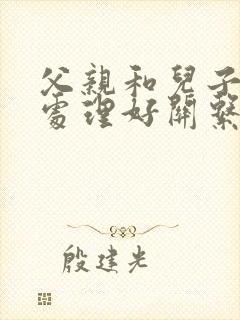 父親和兒子
處理好關繫
殷建光